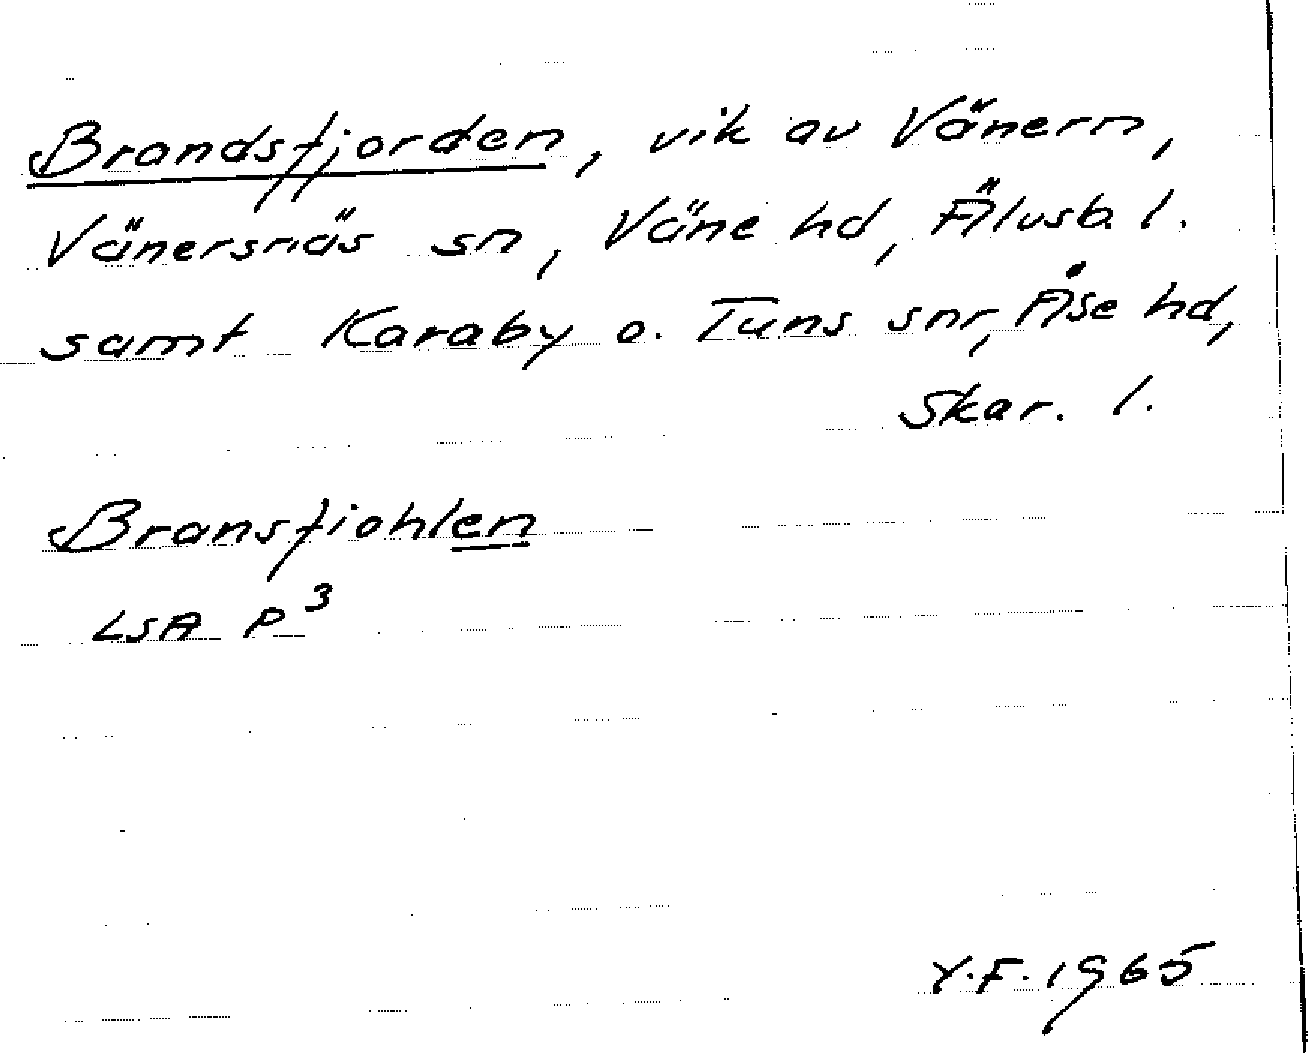 Brandsfjorden, vik av Vänern,
Vänersnäs sn, Väne hd, Älvsb. l.
samt Karaby o. Tuns snr, Åse hd,
Skar. l.
Bransfiohlen
LSA P³
Y.F. 1965